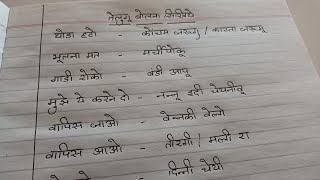 तेलुगु बोलना सिखिये
थोडा हटो - कोंचम जरुगु / कास्ता जरूगु
भूलना मत - मर्चीपोकू
गाडी रोको - बंडी आपू
मुझे ये करने दो - नन्नू इदी चेयनीवू
वापिस जाओ - वेनक्की वेल्लो
वापिस आओ - तीरगी / मल्ली रा